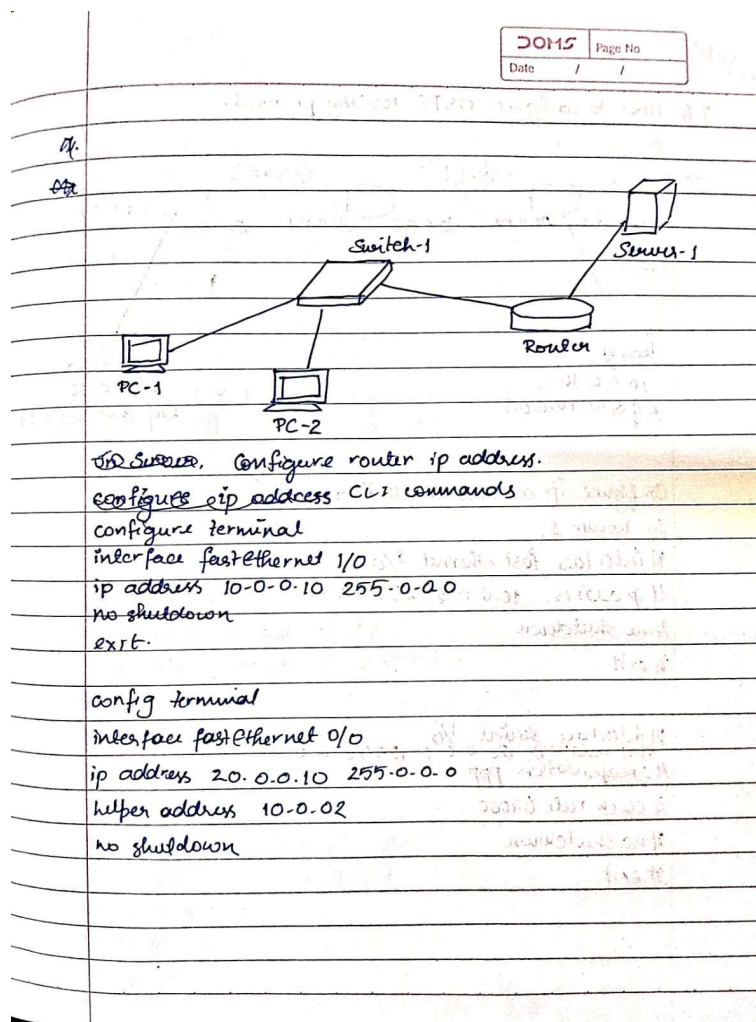 DOMS Page No
Date / /
Switch-1
Server-1
Router
PC-1
PC-2
Configure router ip address.
configure ip address CLI commands
configure terminal
interface fastEthernet 1/0
ip address 10-0-0-10 255-0-0.0
no shutdown
exit.
config terminal
interface fastEthernet 0/0
ip address 20.0.0.10 255-0-0-0
helper address 10-0.02
no shutdown